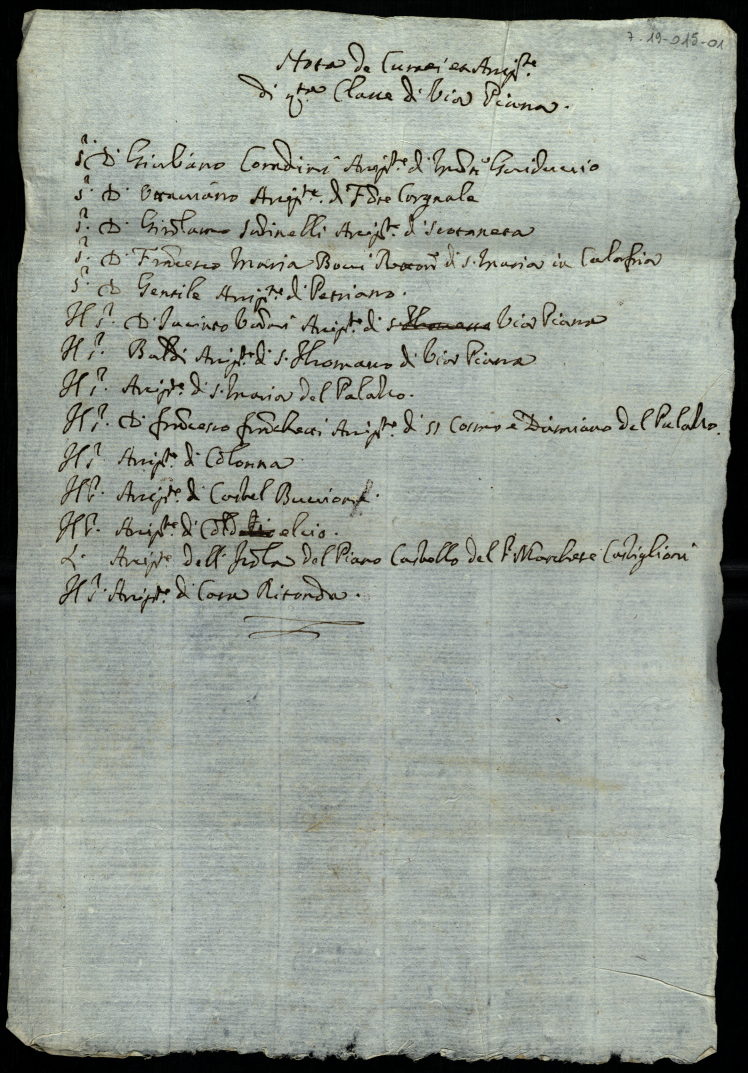 7-19-015-01
Nota de Curati et Arcip.te
di q.ta Classe di Via Piana.
S.r D. Giuliano Corradini Arcip.te di Guiduccio
S.r D. Ottaviano Arcip.te di Torre Cotgnale
S.r D. Girolamo Arcip.te di Scotaneta
S.r D. Francesco Maria Bocci di S. Maria in Calafria
S.r D. Gentile Arcip.te di Petriano.
Il S.r D. Jacinto Arcip.te di Via Piana
Il S.r Baldi Arcip.te di S. Thomaso di Via Piana
Il S.r Arcip.te di S. Maria del Palazzo.
Il S.r D. francesco franchetti Arcip.te di SS Cosmo e Damiano del Palazzo.
Il S.r Arcip.te di Colonna
Il S.r Arcip.te di Castel
Il S.r Arcip.te di
L' Arcip.te dell' Isola del Piano Castello del S.r Marchese Castiglioni
Il S.r Arcip.te di Casa Ritonda.